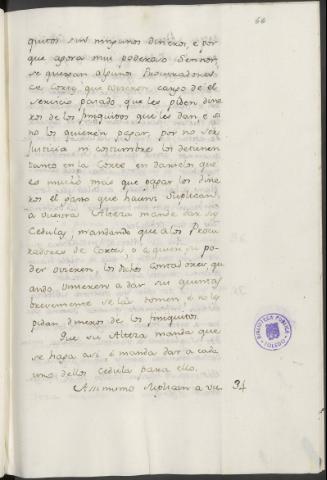 66
quitos sin ningunos dineros, e por
que agora mui poderoso Señor,
se quexan algunos Procuradores
de Corte, que tuvieron cargo de el
servicio pasado, que les piden dine
ros de los finiquitos que les dan, e si
no los quieren pagar, por no ser
justicia ni costumbre los detienen
tanto en la Corte en darselos que
es mucho mas que pagar los dine
ros el gasto que hacen: suplican
a vuestra Alteza mande dar su
Cedula, mandando que a los Procu
radores de Cortes, o a quien su po
der ovieren, los dichos Contadores qu
ando vinieren a dar su quenta
brevemente se las tomen, e no les
pidan dineros de los finiquitos.
Que su Alteza manda que
se haga asi e manda dar a cada
uno dellos Cedula para ello.
Assimismo suplican a vu- 34
BIBLIOTECA PUBLICA
TOLEDO